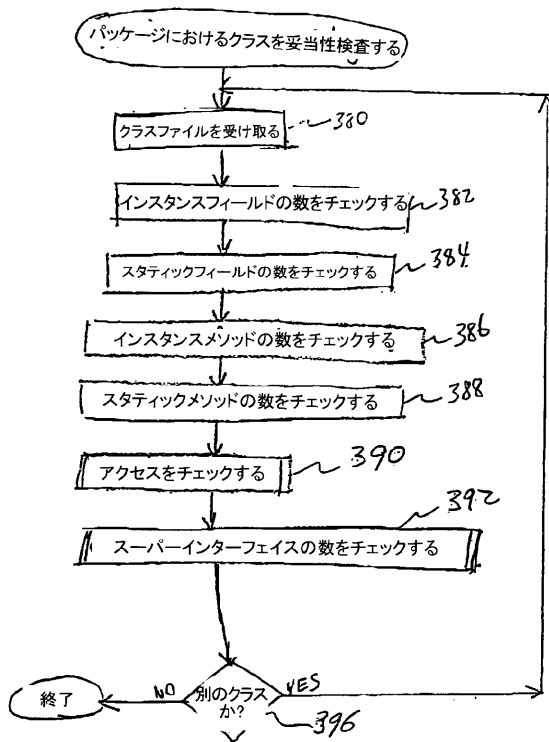 パッケージにおけるクラスを妥当性検査する
クラスファイルを受け取る
380
インスタンスフィールドの数をチェックする
382
スタティックフィールドの数をチェックする
384
インスタンスメソッドの数をチェックする
386
スタティックメソッドの数をチェックする
388
アクセスをチェックする
390
392
スーパーインターフェイスの数をチェックする
終了
NO
別のクラス
か?
YES
396